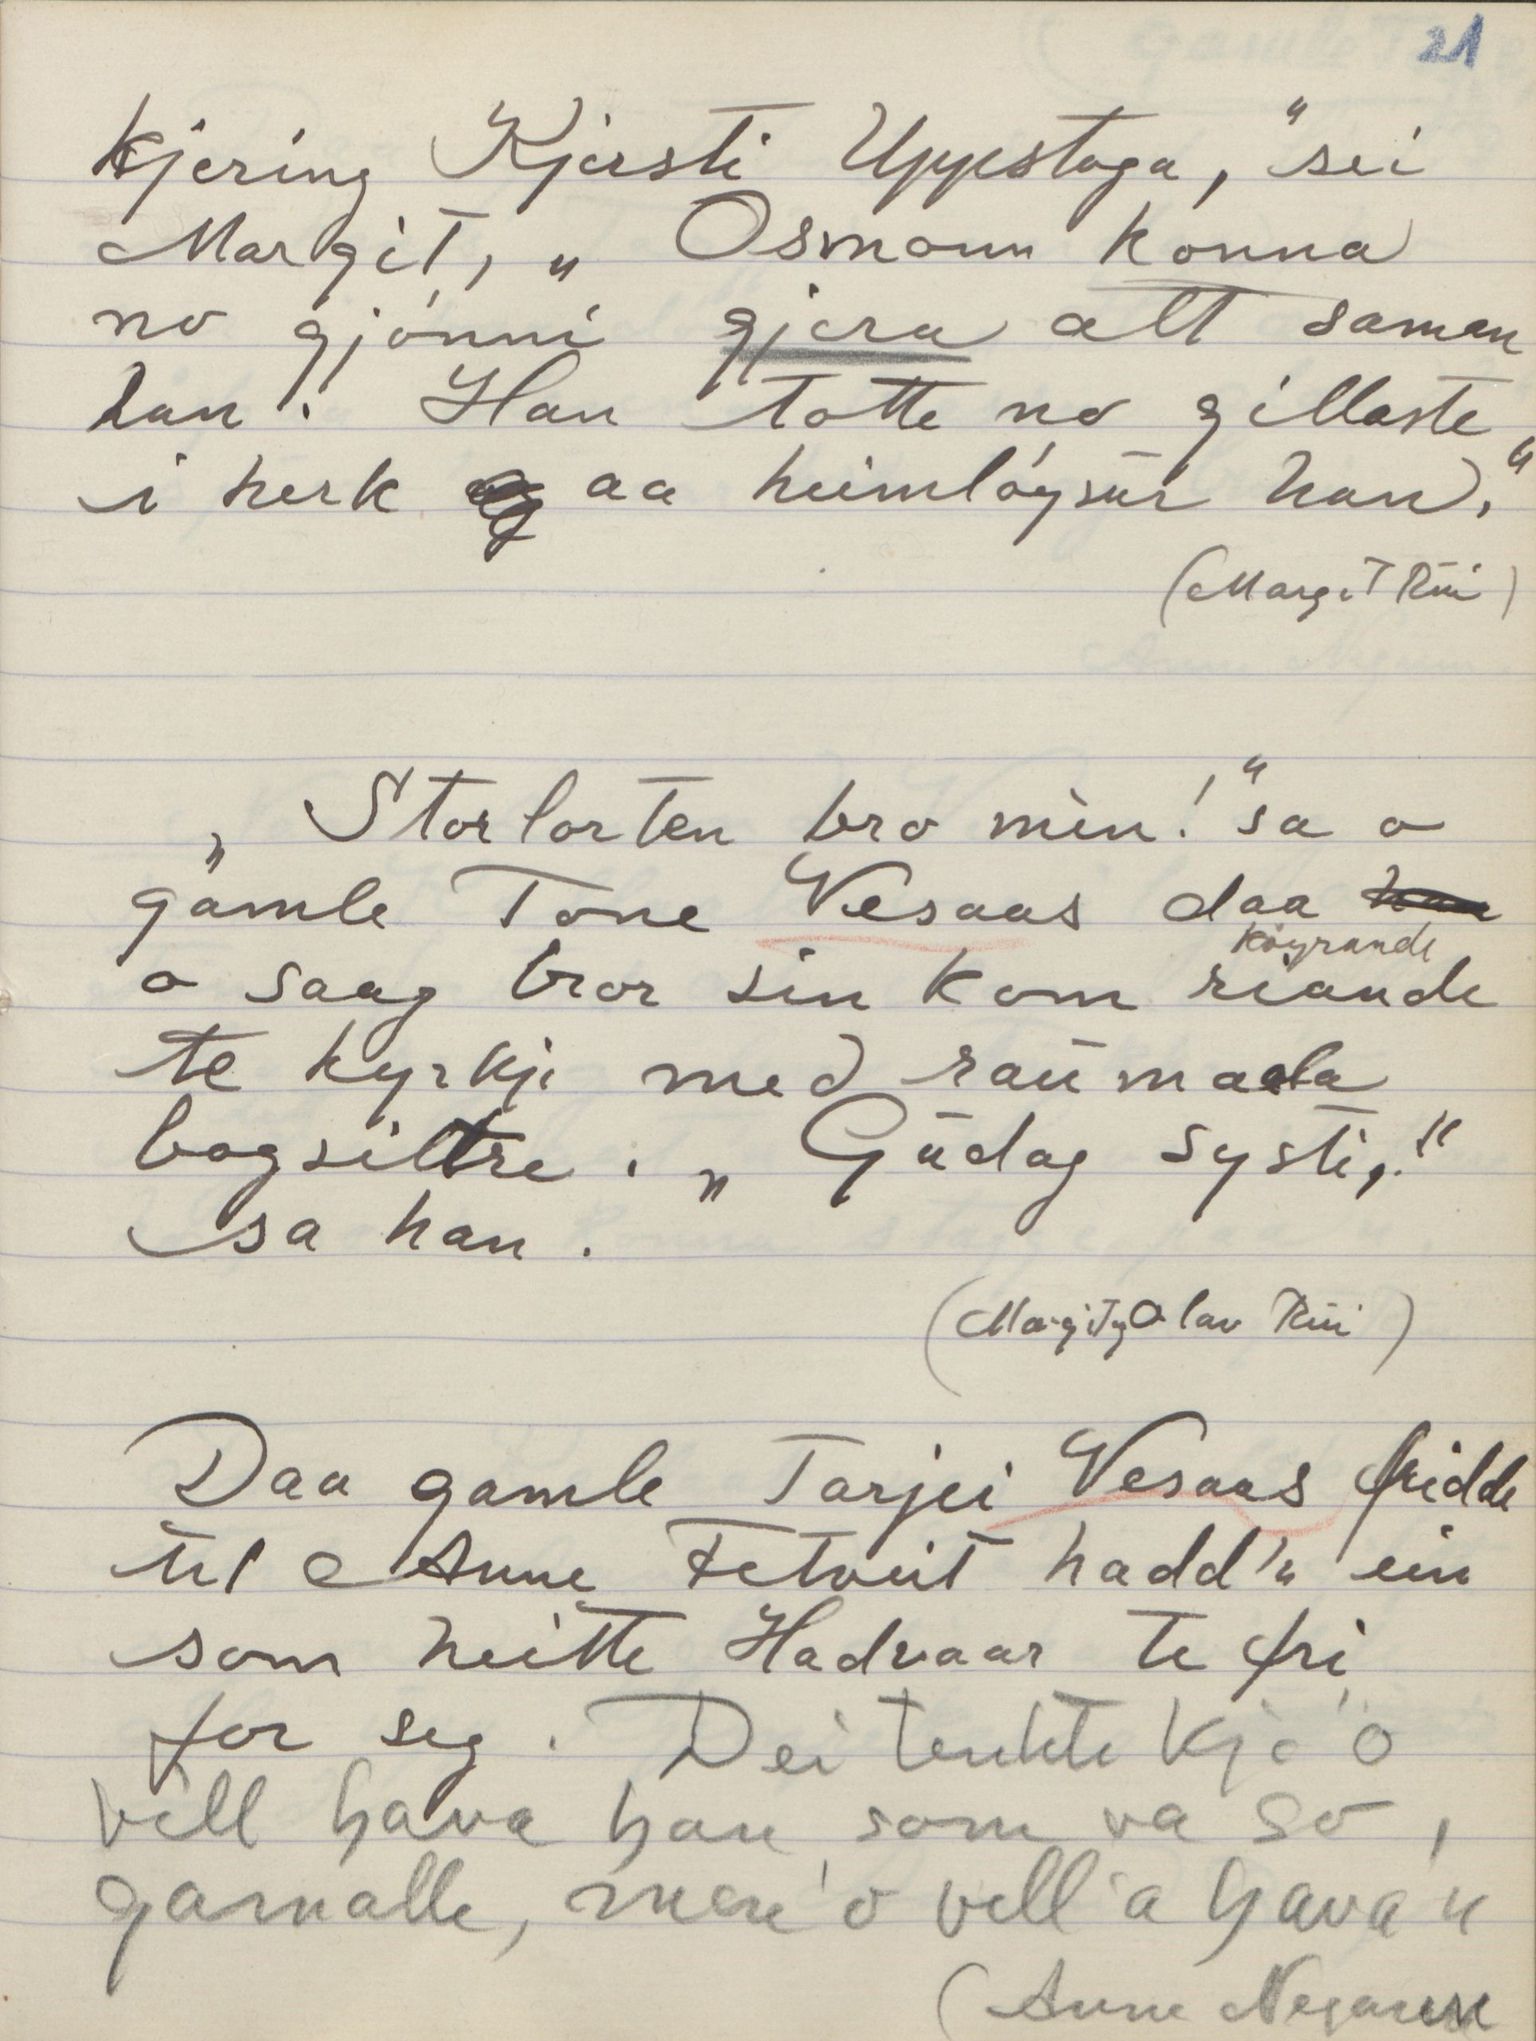 21
kjering Kjersti Uppestoga," sei
Margit, „ Osmonn konna
no gjónni gjera alt saman
han. Han totte no gillaste
i herk aa heimløysur han."
(Margit Rui)
„ Storlorten bro min!" sa o
gamle Tone Vesaas daa
køyrande
o saag bror sin kom riande
te kyrkje med raumaala
bogsiltre. „ Gudag systi,."
sa han.
(Margit og Olav Rui)
Daa gamle Tarjei Vesaas fridde
til Anne Fetveit hadd'n ein
som heitte Hadvaar te fri
for seg. Dei tenkte kje 'o
vill hava han som va so,
gamalle, men 'o vill'a hava 'n
(Anne Negaren